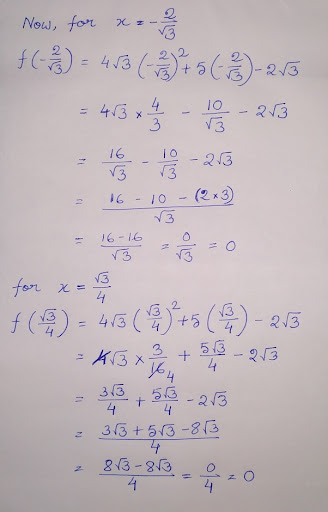 Now, for x = -2/√3
f(-2/√3) = 4√3 (-2/√3)² + 5 (-2/√3) - 2√3
= 4√3 × 4/3 - 10/√3 - 2√3
= 16/√3 - 10/√3 - 2√3
= (16 - 10 - (2×3))/√3
= (16-16)/√3 = 0/√3 = 0
for x = √3/4
f(√3/4) = 4√3 (√3/4)² + 5 (√3/4) - 2√3
= 4√3 × 3/16 4 + 5√3/4 - 2√3
= 3√3/4 + 5√3/4 - 2√3
= (3√3 + 5√3 - 8√3)/4
= (8√3 - 8√3)/4 = 0/4 = 0